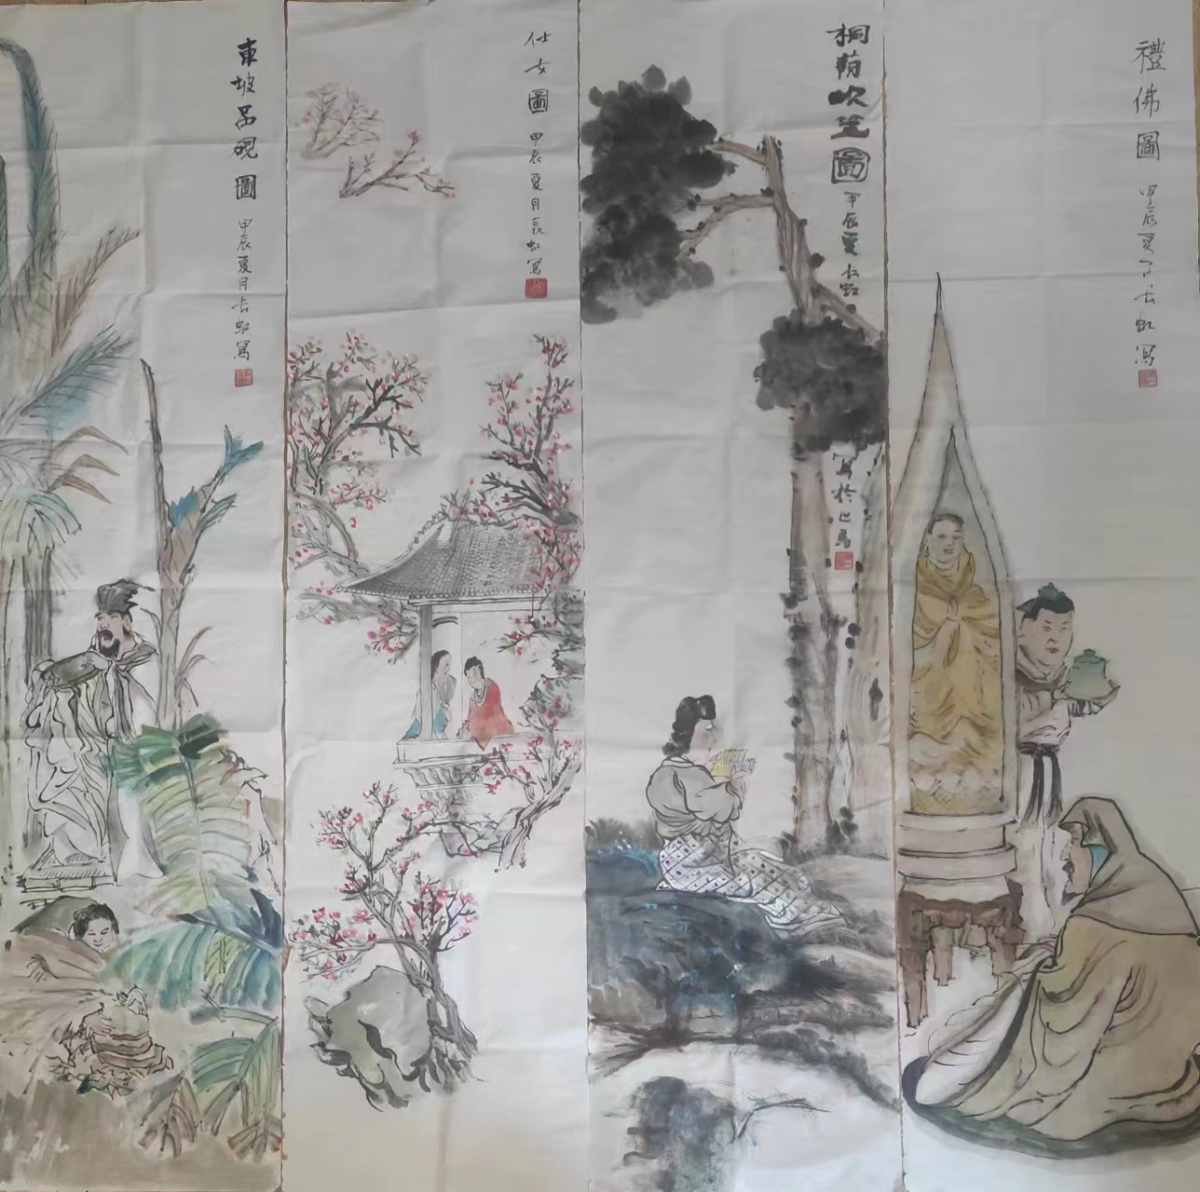 禮佛圖 甲辰夏了长虹写
桐荫吹笙圖 甲辰夏长虹
写於巴馬
仕女圖 甲辰夏月長虹写
東坡吊硯圖 甲辰夏月长虹写